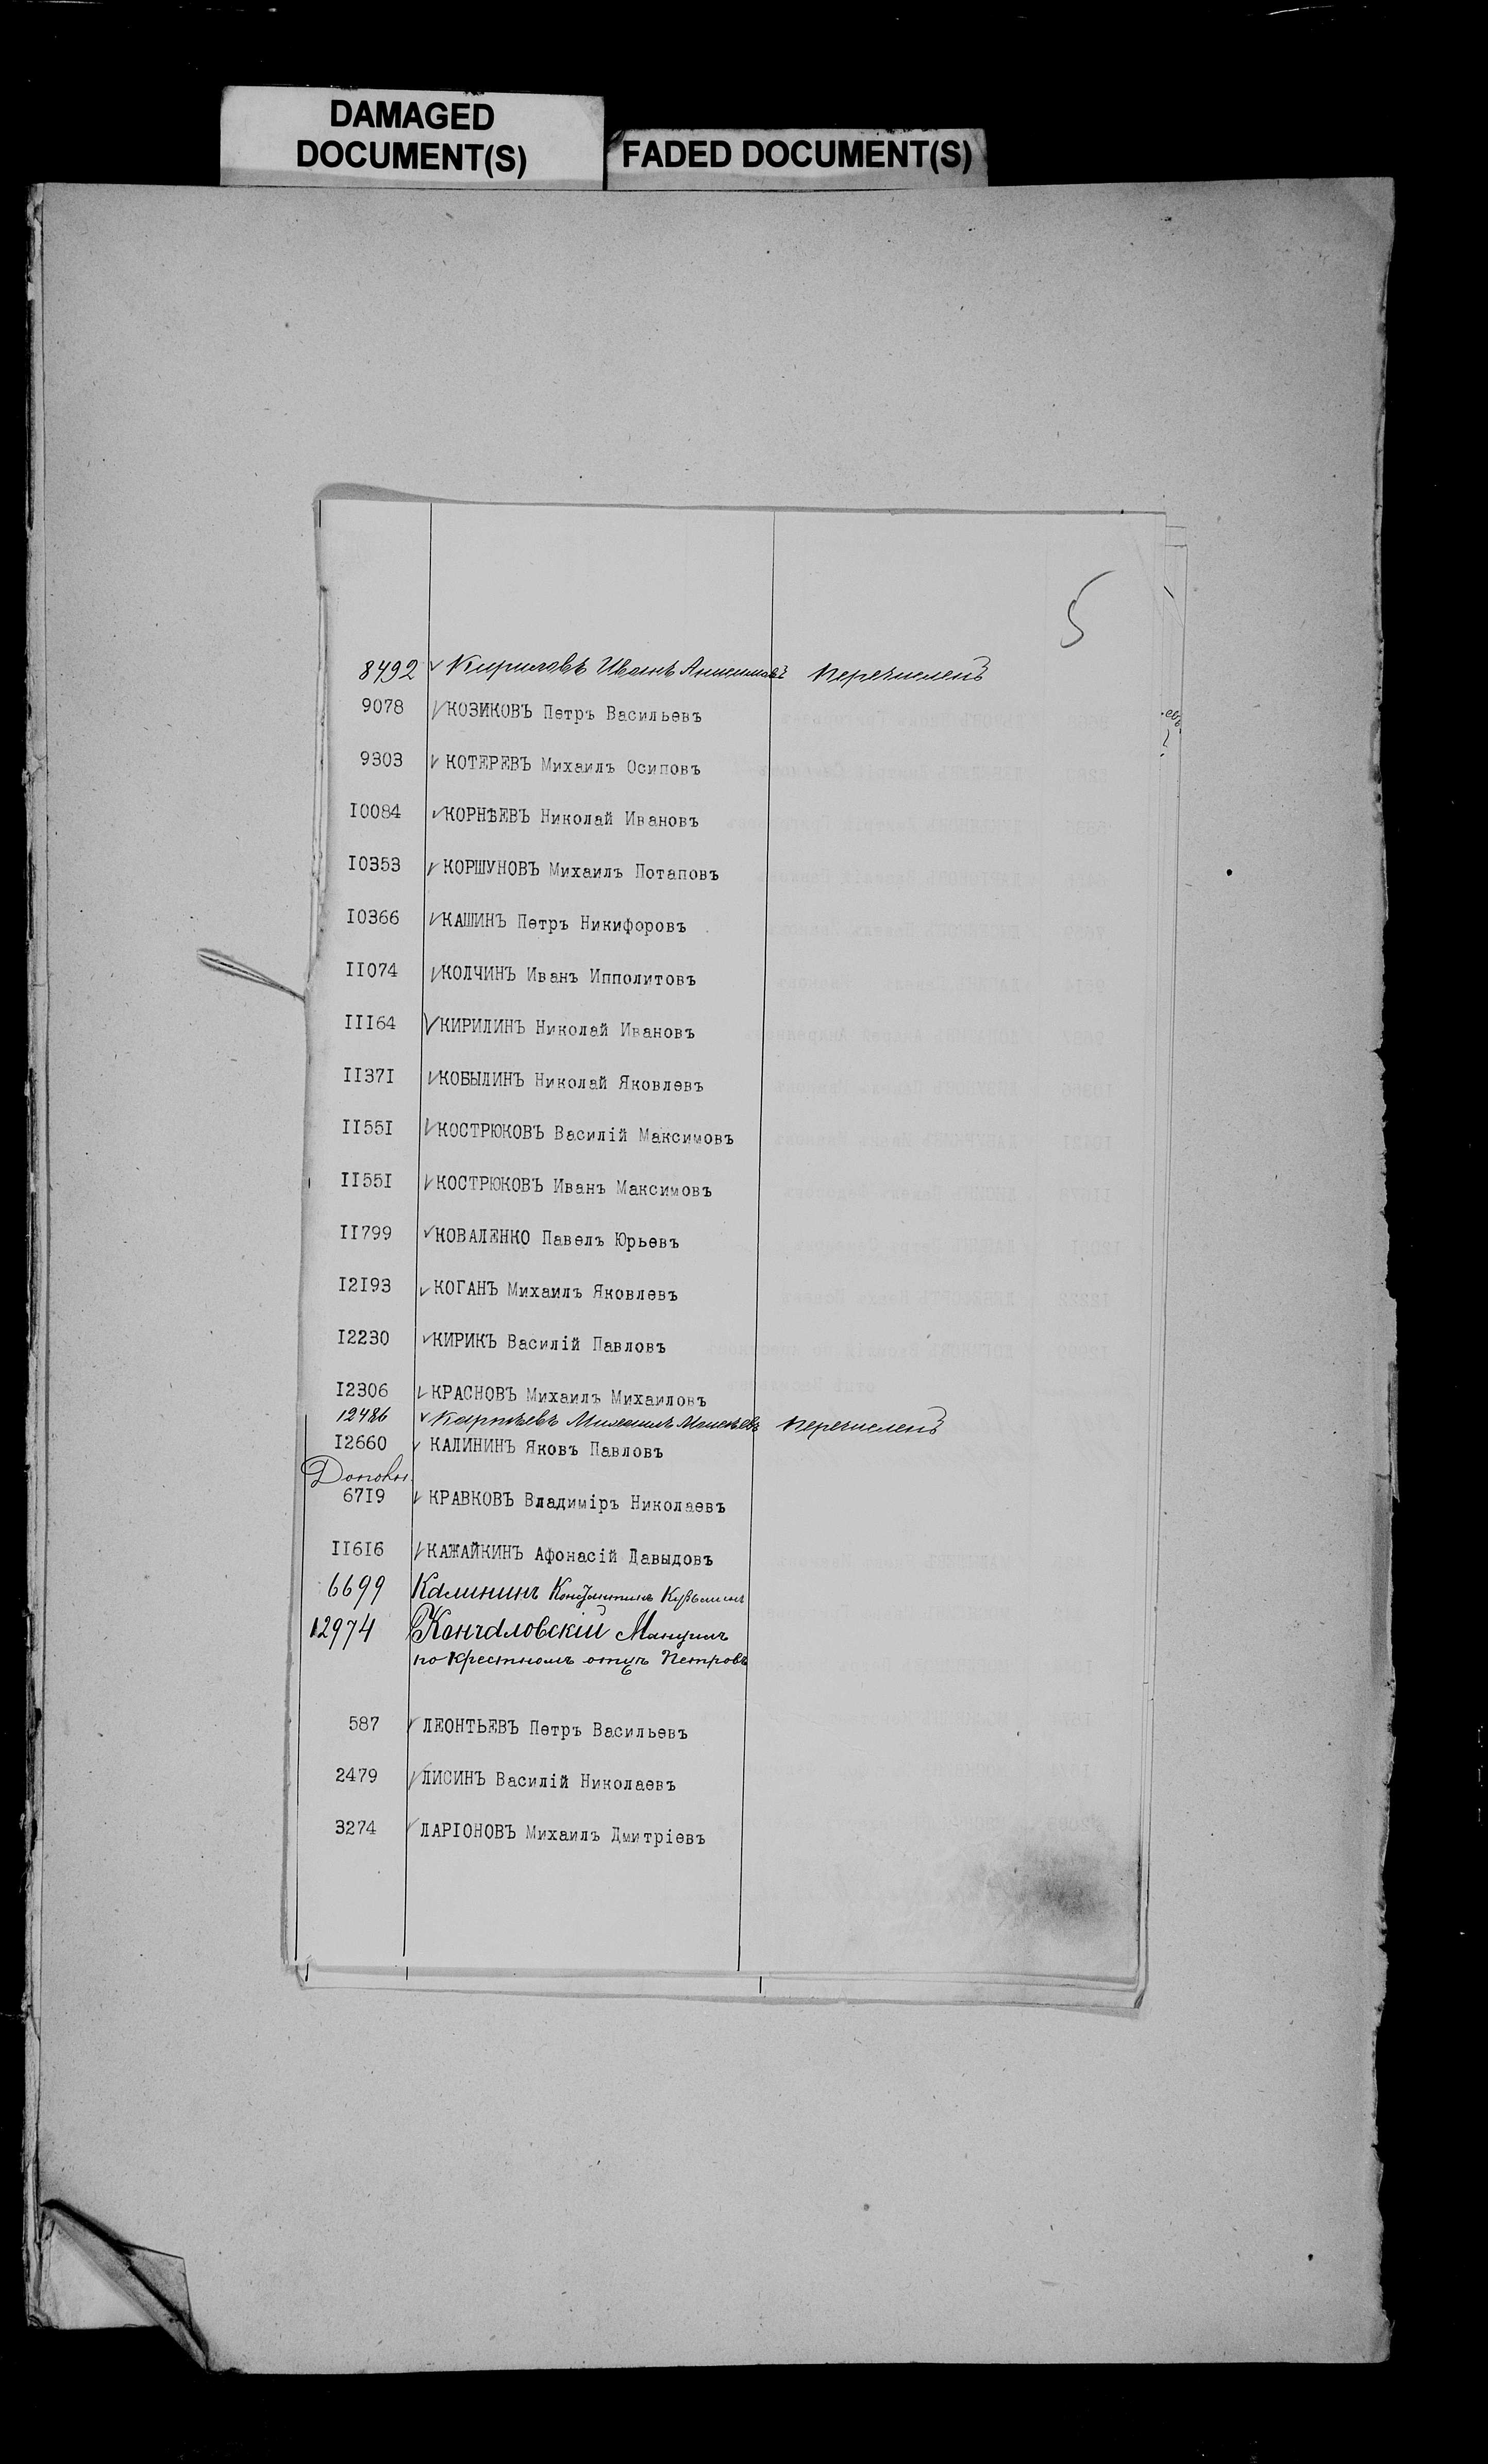 DAMAGED
DOCUMENT(S)
FADED DOCUMENT(S)
5
8492 Кириловъ Иванъ Анисимовъ перечисленъ
9078 КОЗИКОВЪ Петръ Васильевъ
9303 КОТЕРЕВЪ Михаилъ Осиповъ
I0084 КОРНѢЕВЪ Николай Ивановъ
I0353 КОРШУНОВЪ Михаилъ Потаповъ
I0366 КАШИНЪ Петръ Никифоровъ
II074 КОЛЧИНЪ Иванъ Ипполитовъ
III64 КИРИЛИНЪ Николай Ивановъ
II37I КОБЫЛИНЪ Николай Яковлевъ
II55I КОСТРЮКОВЪ Василій Максимовъ
II55I КОСТРЮКОВЪ Иванъ Максимовъ
II799 КОВАЛЕНКО Павелъ Юрьевъ
I2I93 КОГАНЪ Михаилъ Яковлевъ
I2230 КИРИКЪ Василій Павловъ
I2306 КРАСНОВЪ Михаилъ Михаиловъ
12486 Карпѣевъ Михаилъ перечисленъ
I2660 КАЛИНИНЪ Яковъ Павловъ
67I9 КРАВКОВЪ Владиміръ Николаевъ
II6I6 КАЖАЙКИНЪ Афонасій Давыдовъ
6699 Калининъ Константинъ Кузьминъ
12974 Кончаловскій
по крестномъ отцѣ Петровъ
587 ЛЕОНТЬЕВЪ Петръ Васильевъ
2479 ЛИСИНЪ Василій Николаевъ
3274 ЛАРІОНОВЪ Михаилъ Дмитріевъ